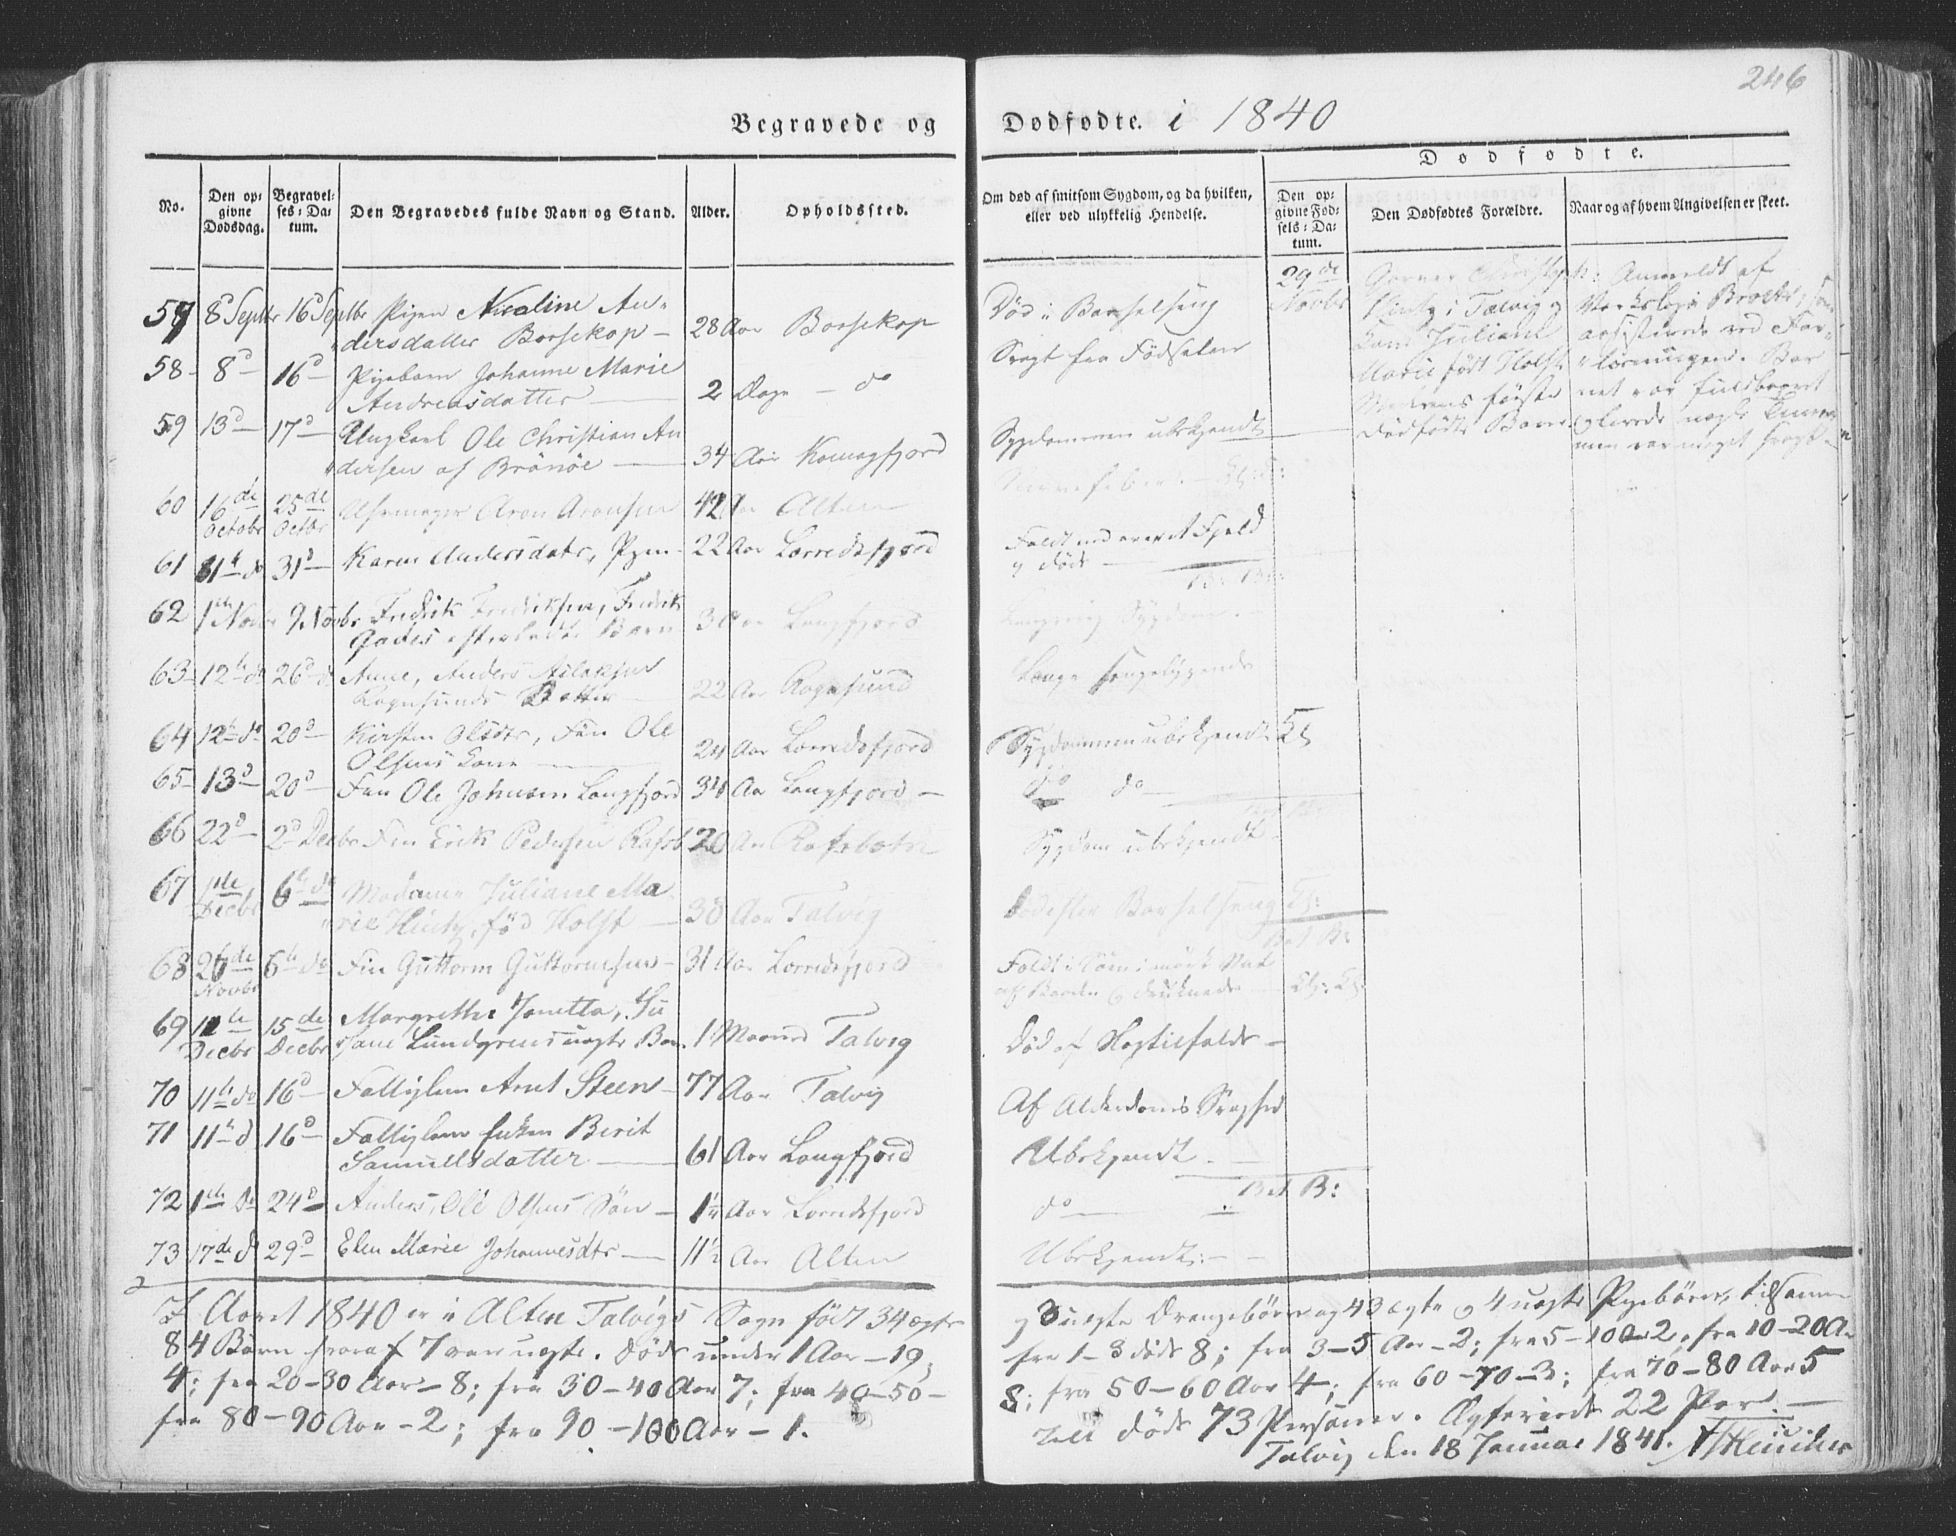 246
Begravede og Dødfødte. i 1840
Dødfødte.
No.
Den opgivne Dødsdag.
Begravelses-Datum.
Den Begravedes fulde Navn og Stand.
Alder.
Opholdssted.
Om død af smitsom Sygdom, og da hvilken, eller ved ulykkelig Hendelse.
Den opgivne Fødsels-Datum.
Den Dødfødtes Forældre.
Naar og af hvem Angivelsen er skeet.
57 8d Septbr 16d Septbr Pigen Nicoline An-
dersdatter Bosekop 28 Aar Bosekop Død i Barselseng
58 8d 16d Pigebarn Johanne Marie
Andreasdatter 2 Dage do Svagt fra Fødselen
59 13d 17d Ungkarl Ole Christian An
dersen af Brönöe 34 Aar Komagfjord Sygdommen ubekjendt
60 16de Octobr 25de Octbr Aron Aronsen 42 Aar Alten
61 31te do 31d Karen Andersdatr, Pigen 22 Aar Lerredsfjord Faldt ned over et Fjeld
og døde
62 1ste Novbr 9 Novbr Fredrik Fredriksen, Fredrik
Gades efterladte Barn 3 Aar Langfjord Langvarig Sygdom
63 12te do 26d do Anne, Anders Aslaksen
Rognsunds Datter 22 Aar Rognsund Længe sengeliggende
64 12te do 20d Kirsten Olsdtr, Fin Ole
Olsens Kone 24 Aar Lerredsfjord Sygdommen ubekjendt
65 13d 20d Fin Ole Johnsen Langfjord 34 Aar Langfjord do do
66 22d 2d Decbr Fin Erik Pedersen Rafsb 20 Aar Rafsbotn Sygdom ubekjendt
67 1ste Decbr 6te do Madame Juliane Ma
rie Hintz, fød Holst 30 Aar Talvig Død efter Barselseng
68 26de Novbr 6te do Fin Guttorm Guttormsen 31 Aar Lerredsfjord Faldt i Søen i mørk Nat
af Baaden og druknede
69 12te Decbr 15de Decbr Margrethe Jonetta, Su
sane Lundgrens uægte Barn 1 Maaned Talvig Død af Slagtilfælde
70 11te do 16d Fattiglem Arnt Steen 77 Aar Talvig Af Alderdoms Svaghed
71 11te do 16d Fattiglem Enken Berit
Samuelsdatter 61 Aar Langfjord Ubekjendt
72 1ste do 24d Anders, Ole Olsens Søn 1 1/4 Aar Lerredsfjord do
73 17de do 29d Elen Marie Johannesdtr 11 1/2 Aar Alten Ubekjendt
29de
Novbr
Hintz i Talvig og
Kone Juliane
Marie født Holst
Moderens første
dødfødte Barn
Anmeldt af
assisterede ved For-
løsningen. Bar
net var fuldbaaret
men var meget svagt
I Aaret 1840 er i Alten Talvigs Sogn født 34 ægte
og 3 uægte Drengebørn og 43 ægte og 4 uægte Pigebørn, tilsamen
84 Børn hvoraf 7 var uægte. Døde under 1 Aar - 19;
fra 1-3 døde 8; fra 3-5 Aar - 2; fra 5-10 Aar 2, fra 10-20 Aar
4; fra 20-30 Aar - 8; fra 30-40 Aar 7; fra 40-50 -
8; fra 50-60 Aar 4; fra 60-70 - 3; fra 70-80 Aar 5
fra 80-90 Aar - 2; fra 90-100 Aar - 1.
døde 73 Personer. Ægteviede 22 Par.
Talvig den 18 Januar 1841.